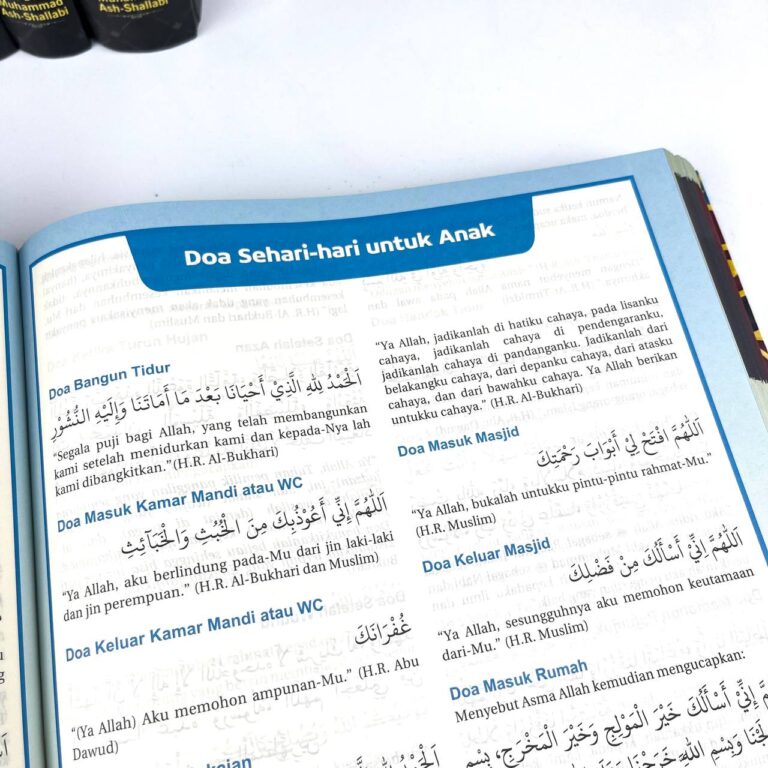 Muhammad
Ash-Shallabi
Ash-Shallabi
Doa Sehari-hari untuk Anak
Doa Bangun Tidur
اَلْحَمْدُ لِلّٰهِ الَّذِيْ أَحْيَانَا بَعْدَ مَا أَمَاتَنَا وَإِلَيْهِ النُّشُوْرُ
“Segala puji bagi Allah, yang telah membangunkan
kami setelah menidurkan kami dan kepada-Nya lah
kami dibangkitkan.” (H.R. Al-Bukhari)
Doa Masuk Kamar Mandi atau WC
اَللّٰهُمَّ إِنِّيْ أَعُوْذُبِكَ مِنَ الْخُبُثِ وَالْخَبَآئِثِ
“Ya Allah, aku berlindung pada-Mu dari jin laki-laki
dan jin perempuan.” (H.R. Al-Bukhari dan Muslim)
Doa Keluar Kamar Mandi atau WC
غُفْرَانَكَ
“(Ya Allah) Aku memohon ampunan-Mu.” (H.R. Abu
Dawud)
“Ya Allah, jadikanlah di hatiku cahaya, pada lisanku
cahaya, jadikanlah cahaya di pendengaranku,
jadikanlah cahaya di pandanganku. Jadikanlah dari
belakangku cahaya, dari depanku cahaya, dari atasku
cahaya, dan dari bawahku cahaya. Ya Allah berikan
untukku cahaya.” (H.R. Al-Bukhari)
Doa Masuk Masjid
اَللّٰهُمَّ افْتَحْ لِيْ أَبْوَابَ رَحْمَتِكَ
“Ya Allah, bukalah untukku pintu-pintu rahmat-Mu.”
(H.R. Muslim)
Doa Keluar Masjid
اَللّٰهُمَّ اِنِّيْ أَسْأَلُكَ مِنْ فَضْلِكَ
“Ya Allah, sesungguhnya aku memohon keutamaan
dari-Mu.” (H.R. Muslim)
Doa Masuk Rumah
Menyebut Asma Allah kemudian mengucapkan:
إِنِّيْ أَسْأَلُكَ خَيْرَ الْمَوْلِجِ وَخَيْرَ الْمَخْرَجِ، بِسْمِ
وَبِسْمِ اللّٰهِ خَرَجْنَا